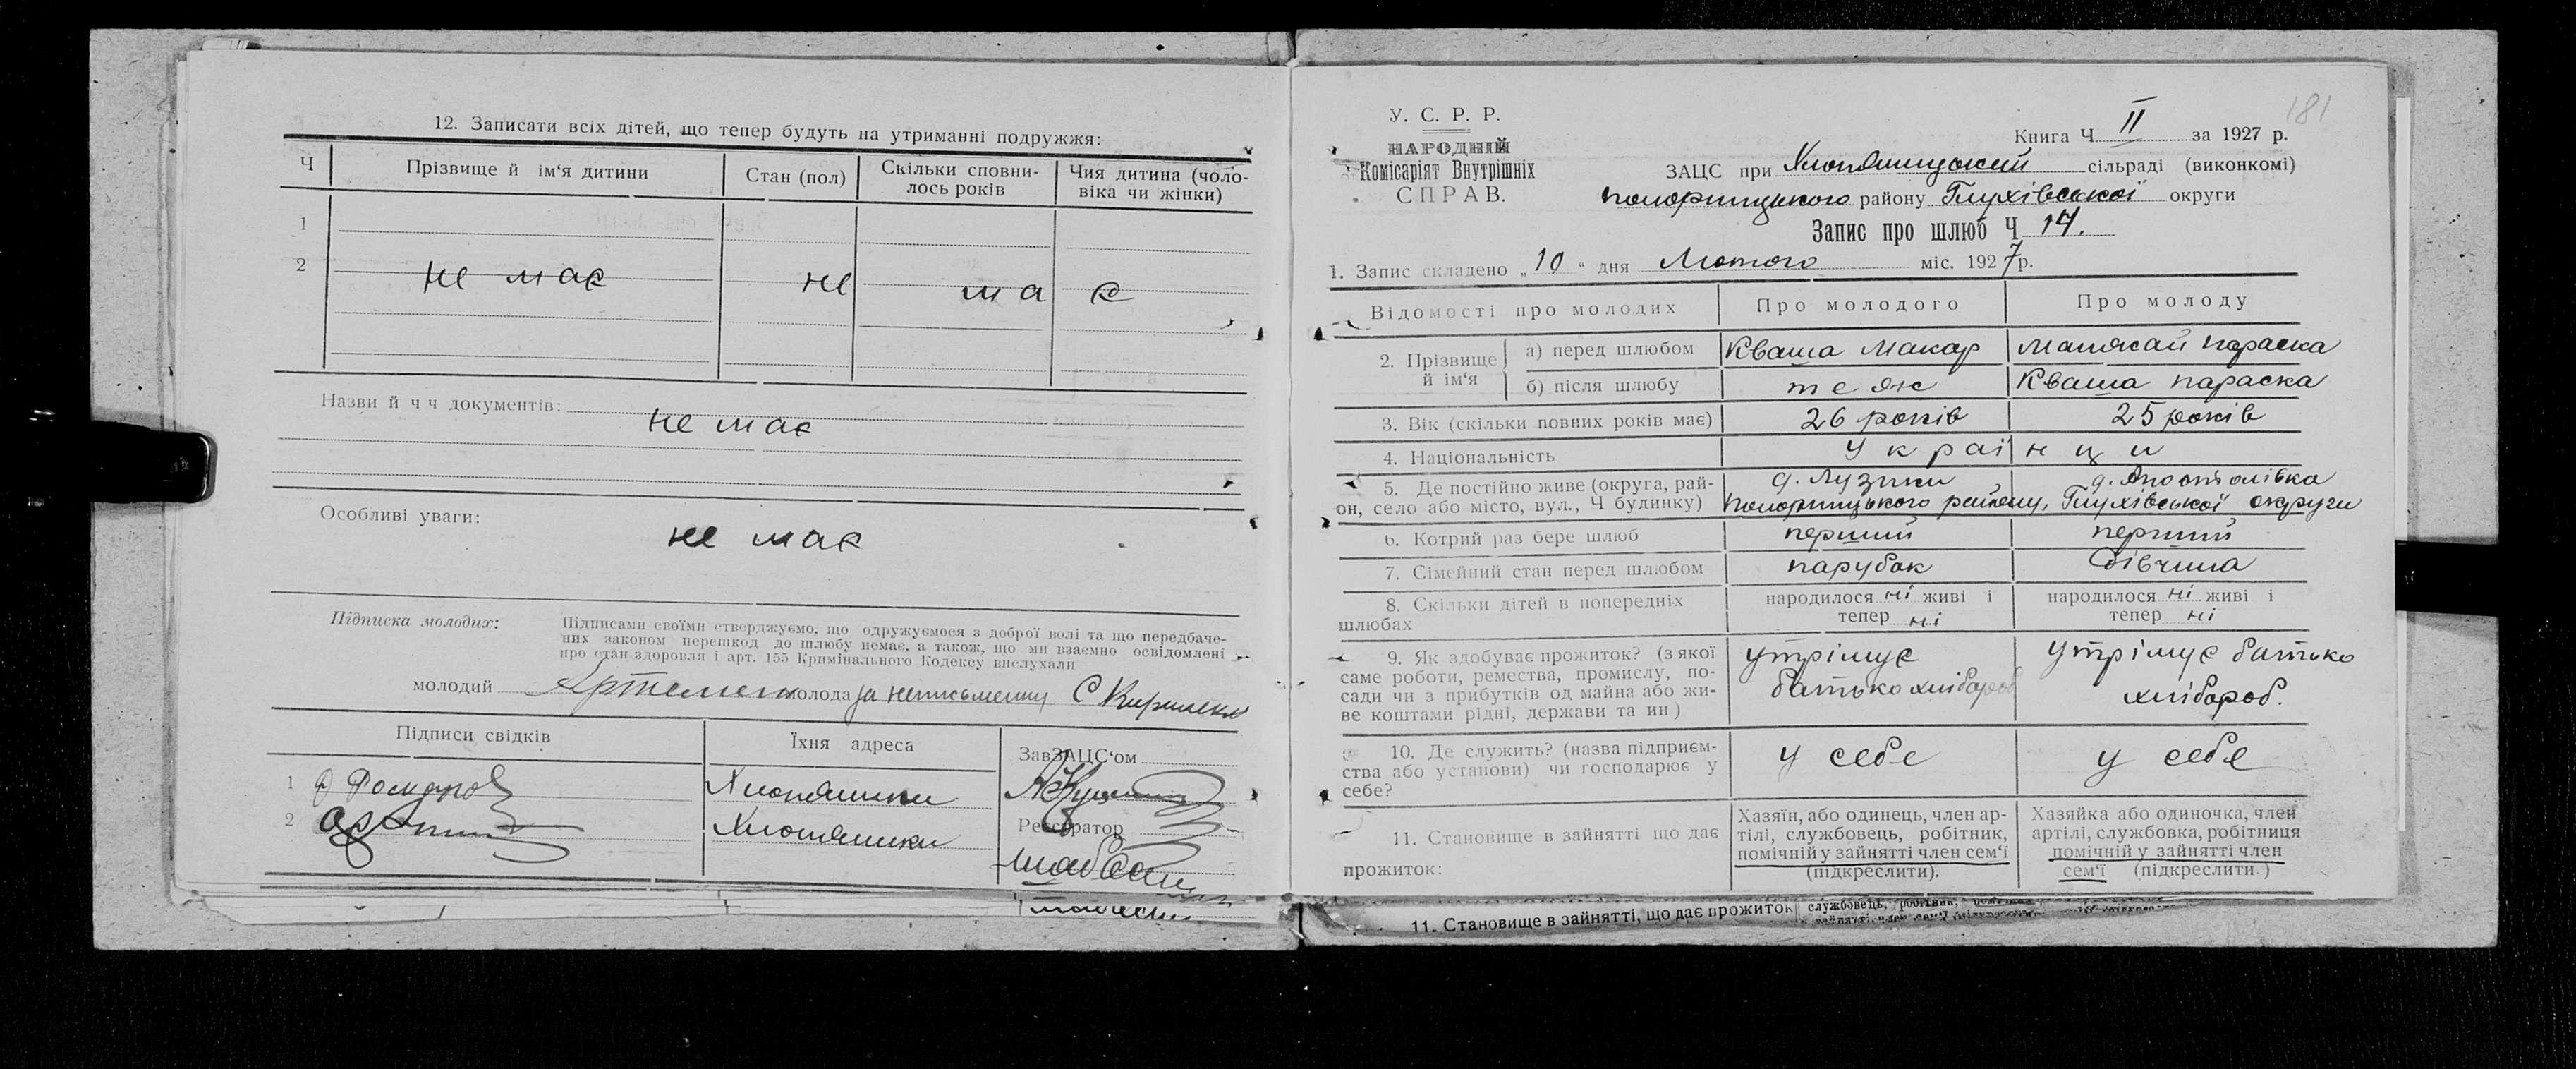 12. Записати всіх дітей, що тепер будуть на утриманні подружжя:
Ч Прізвище й ім‘я дитини Стан (пол) Скільки сповни-лось років Чия дитина (чоло-віка чи жінки)
1
2 не має не ма є
Назви й ч ч документів:
не має
Особливі уваги:
не має
Підписка молодих: Підписами своїми стверджуємо, що одружуємося з доброї волі та що передбаче-
них законом перешкод до шлюбу немає, а також, що ми взаємно освідомлені
про стан здоровля і арт. 155 Кримінального Кодексу вислухали
молодий молода за неписьменну С
Підписи свідків Їхня адреса ЗавЗАЦС‘ом
1 Хлопяники
Реєстратор
2 Хлопяники
181
У. С. Р. Р.
НАРОДНІЙ
Комісаріят Внутрішніх
СПРАВ.
Книга Ч II за 1927 р.
ЗАЦС при Хлопяницький сільраді (виконкомі)
Понорницького району Глухівської округи
Запис про шлюб Ч 14.
1. Запис складено „10“ дня Лютого міс. 1927 р.
Відомості про молодих Про молодого Про молоду
2. Прізвище й ім‘я
а) перед шлюбом Кваша Макар Параска
б) після шлюбу те ж Кваша Параска
3. Вік (скільки повних років має) 26 років 25 років
4. Національність Українци
5. Де постійно живе (округа, рай-
он, село або місто, вул., Ч будинку)
д. Лузики д. Апостолівка
Понорницького району, Глухівської округи
6. Котрий раз бере шлюб перший перший
7. Сімейний стан перед шлюбом парубок дівчина
8. Скільки дітей в попередніх
шлюбах
народилося ні живі і
тепер ні
народилося ні живі і
тепер ні
9. Як здобуває прожиток? (з якої
саме роботи, ремества, промислу, по-
сади чи з прибутків од майна або жи-
ве коштами рідні, держави та ин)
утрімує
батько хлібороб
утрімує батько
хлібороб.
10. Де служить? (назва підприєм-
ства або установи) чи господарює у
себе?
у себе
у себе
11. Становище в зайнятті що дає
прожиток:
Хазяїн, або одинець, член ар-
тілі, службовець, робітник,
помічній у зайнятті член сем‘ї
(підкреслити).
Хазяйка або одиночка, член
артілі, службовка, робітниця
помічній у зайнятті член
сем‘ї (підкреслити.)
11. Становище в зайнятті, що дає прожиток